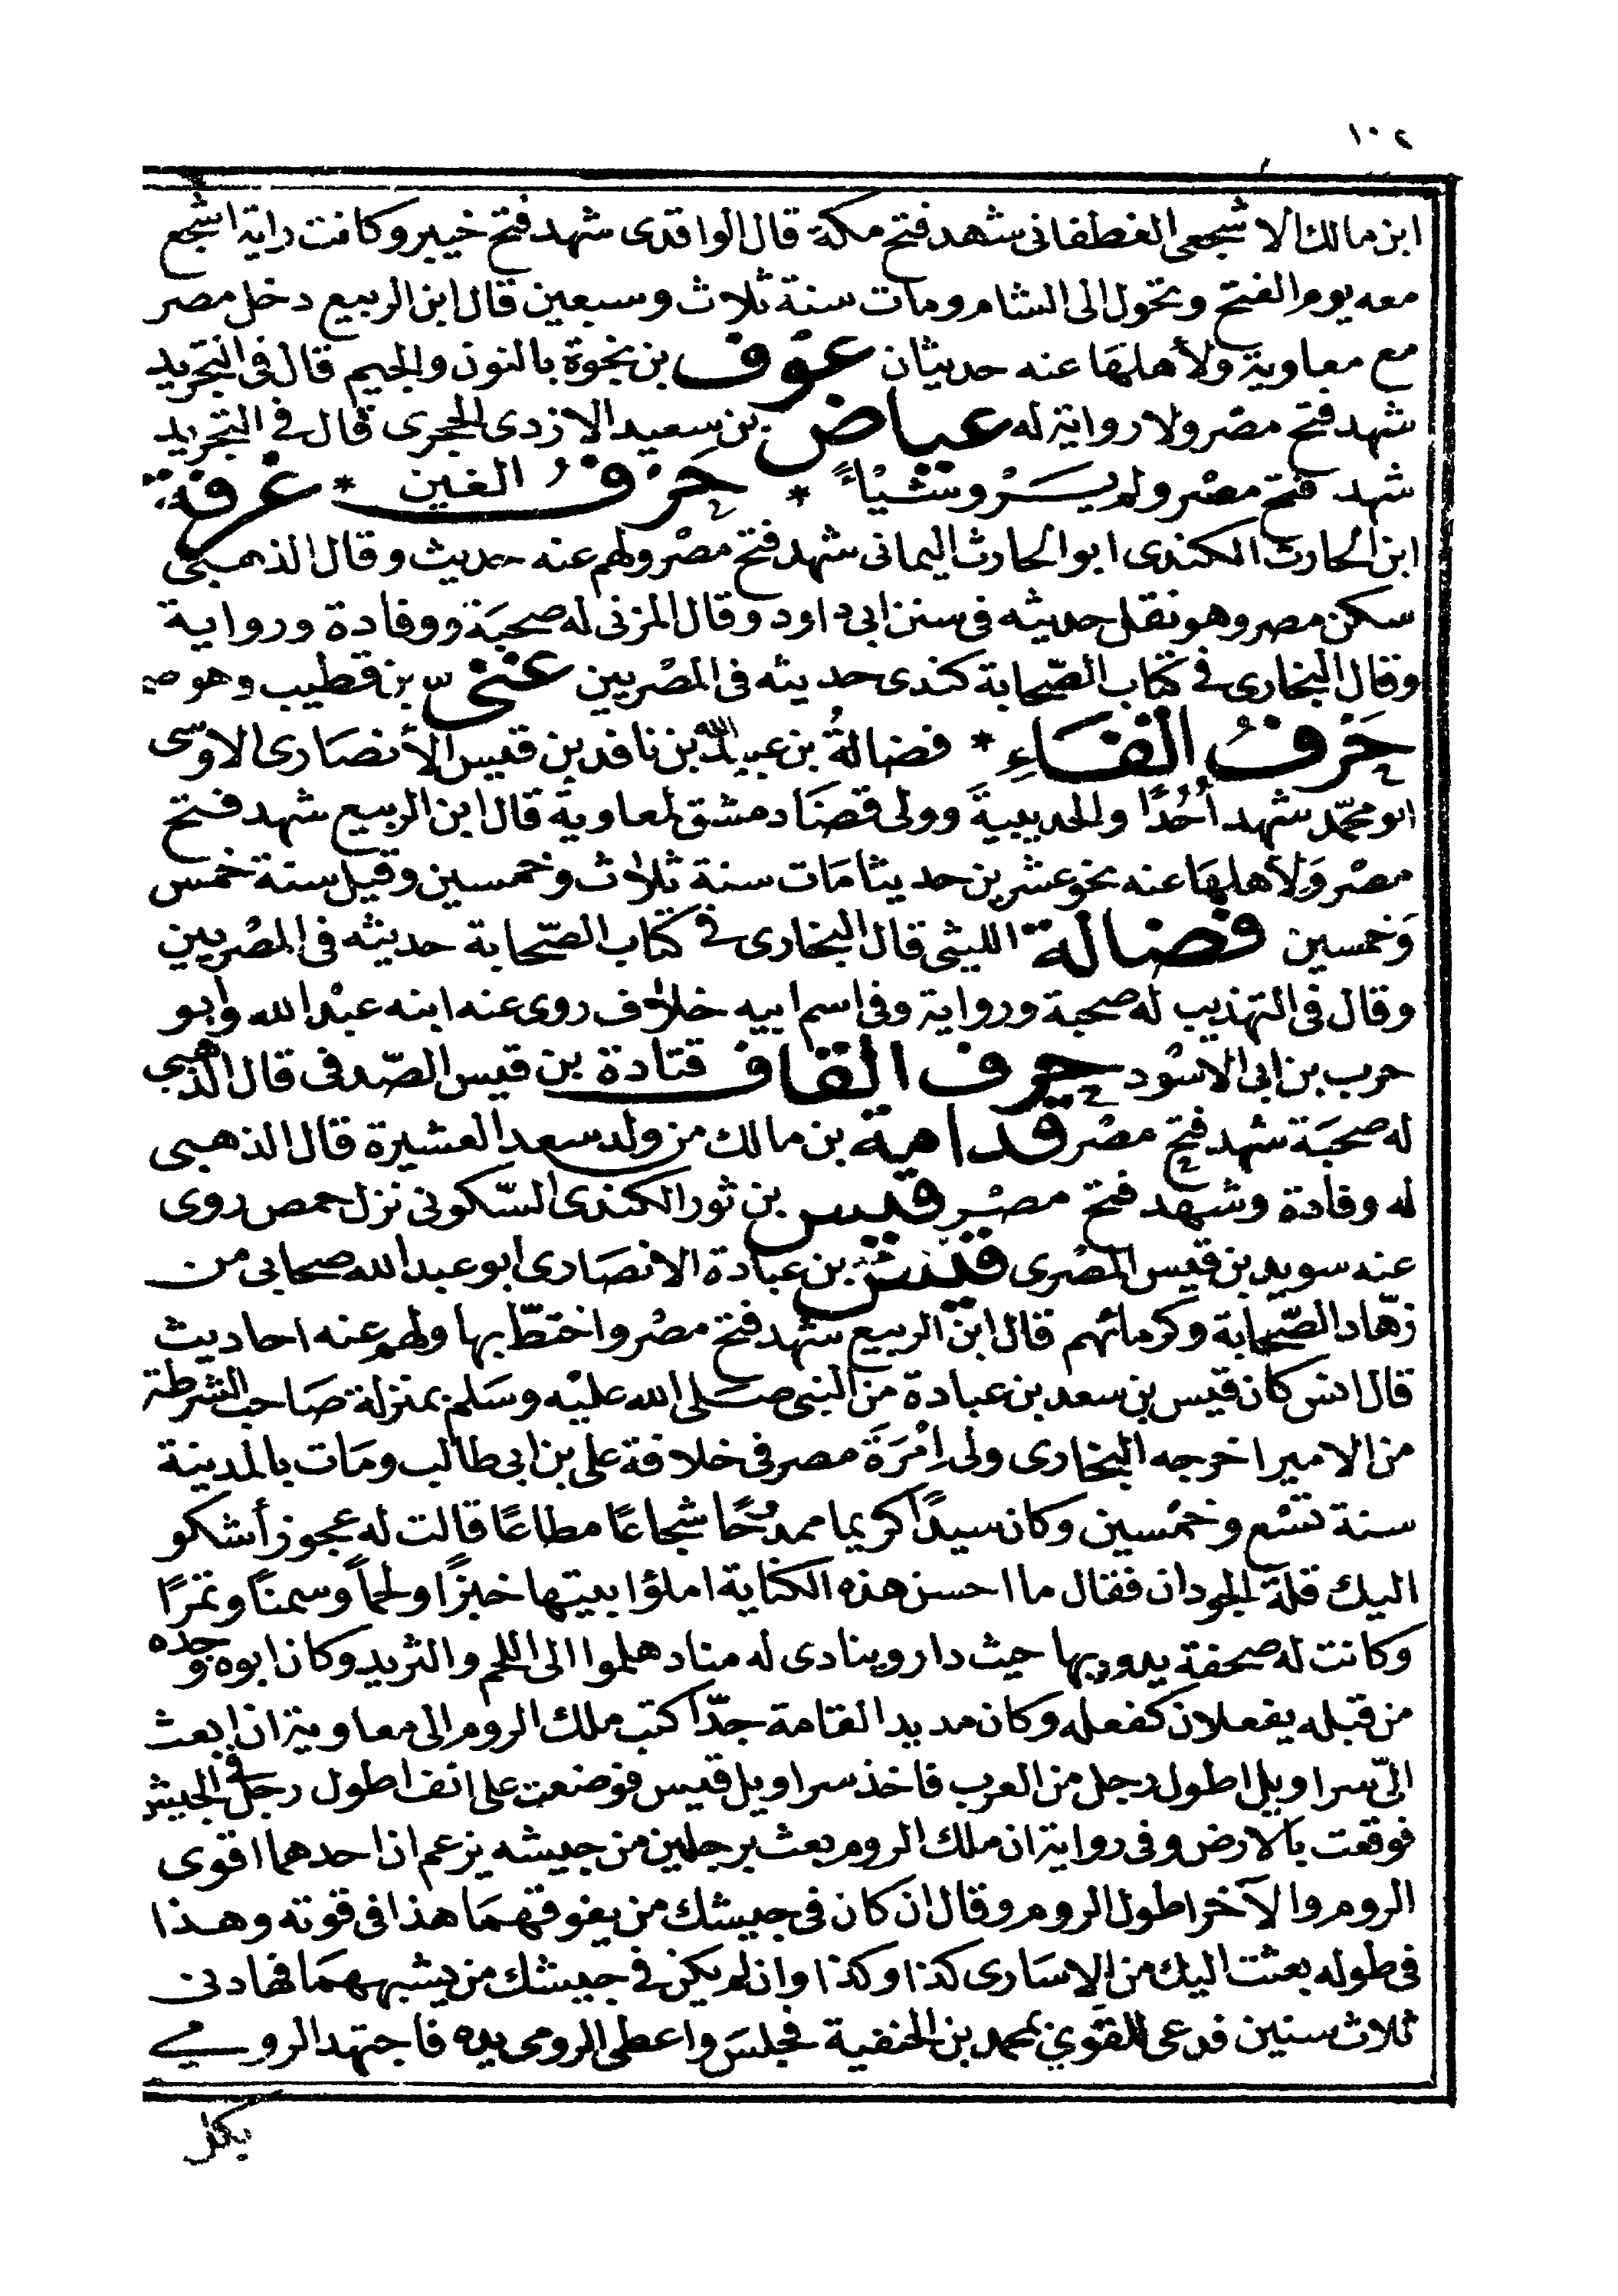 ١٠٢
ابن مالك الاشجعى الغطفانى شهد فتح مكة قال الواقدى شهد فتح خيبر وكانت راية اشجع
معه يوم الفتح وتحول الى الشام ومات سنة ثلاث وسبعين قال ابن الربيع دخل مصر
مع معاوية ولأهلها عنه حديثان عوف بن نجوة بالنون والجيم قال فى التجريد
شهد فتح مصر ولا رواية له عياض بن سعيد الازدى الحجرى قال في التجريد
شهد فتح مصر ولم يسروشيأً * حرف الغين * غرفة
ابن الحارث الكندى ابو الحارث اليمانى شهد فتح مصر ولهم عنه حديث وقال الذهبى
سكن مصر وهو نقل حديثه فى سنن ابى داود وقال المزنى له صحبة ووفادة ورواية
وقال البخارى في كتاب الصحابة كندى حديثه فى المصريين غنى بن قطيب وهو
حَرفُ الفَاءِ * فضالةُ بن عبيد الله بن نافد بن قيس الأنصارى الاوسى
ابو محمّد شهد أُحُدًا والحديبيةَ وولى قضَاء دمشق لمعاوية قال ابن الربيع شهد فتح
مصْر وَلأهلهَا عنه نحو عشرين حديثا مَات سنة ثلاث وخمسين وقيل سنة خمس
وَخمسين فضالة الليثى قال البخارى في كتاب الصّحابة حديثه فى المصْريين
وقال فى التهذيب له صحبة ورواية وفى اسم ابيه خلاف روى عنه ابنه عبْد الله وابو
حرب بن ابى الاسْود حرف القاف قتادة بن قيس الصّدفى قال الذهبى
له صحبَة شهد فتح مصْر قدامة بن مالك من ولد سعد العشيرة قال الذهبى
له وفادة وشهد فتح مصْر قيس بن ثور الكندى السّكونى نزل حمص روى
عنه سويد بن قيس المصْرى قيس بن عبادة الانصَارى ابو عبد الله صحابى من
زهّاد الصّحابة وكرمائهم قال ابن الربيع شهد فتح مصْر واختطّ بها ولهم عنه احاديث
قال انس كان قيس بن سعد بن عبادة من النبى صَلى الله عليْه وسَلم بمنزلة صَاحب الشرطة
من الامير اخرجه البخارى ولى اِمْرَةَ مصر فى خلافة على بن ابى طالب ومَات بالمدينة
سنة تسْع وخمْسين وكان سيدًا كريما ممدُوحًا شجاعًا مطاعًا قالت له عجوز أشكو
اليك قلة الجرذان فقال ما احسن هذه الكناية املؤا بيتها خبزًا ولحماً وسمنًا وتمْرًا
وكانت له صحفة يدور بها حيث دار وينادى له مناد هلموا الى اللحم والثريد وكان ابوه وجده
من قبله يفعلان كفعله وكان مديد القامة جدّا كتب ملك الروم الى معاوية ان ابعث
الىّ سراويل اطول رجل من العرب فاخذ سراويل قيس فوضعت على انف اطول رجل فى الجيش
فوقعت بالارض وفى رواية ان ملك الروم بعث برجلين من جيشه يزعم ان احدهما اقوى
الروم والآخر اطول الروم وقال ان كان فى جيشك من يفوقهمَا هذا فى قوته وهذا
فى طوله بعثت اليك من الاسَارى كذا وكذا وان لم يكن في جيشك من يشبههمَا فهادنى
ثلاث سنين فدعى للقَوي بمحمد بن الحنفية فجلسَ واعطى الرومى يده فاجتهد الرومي
بكل